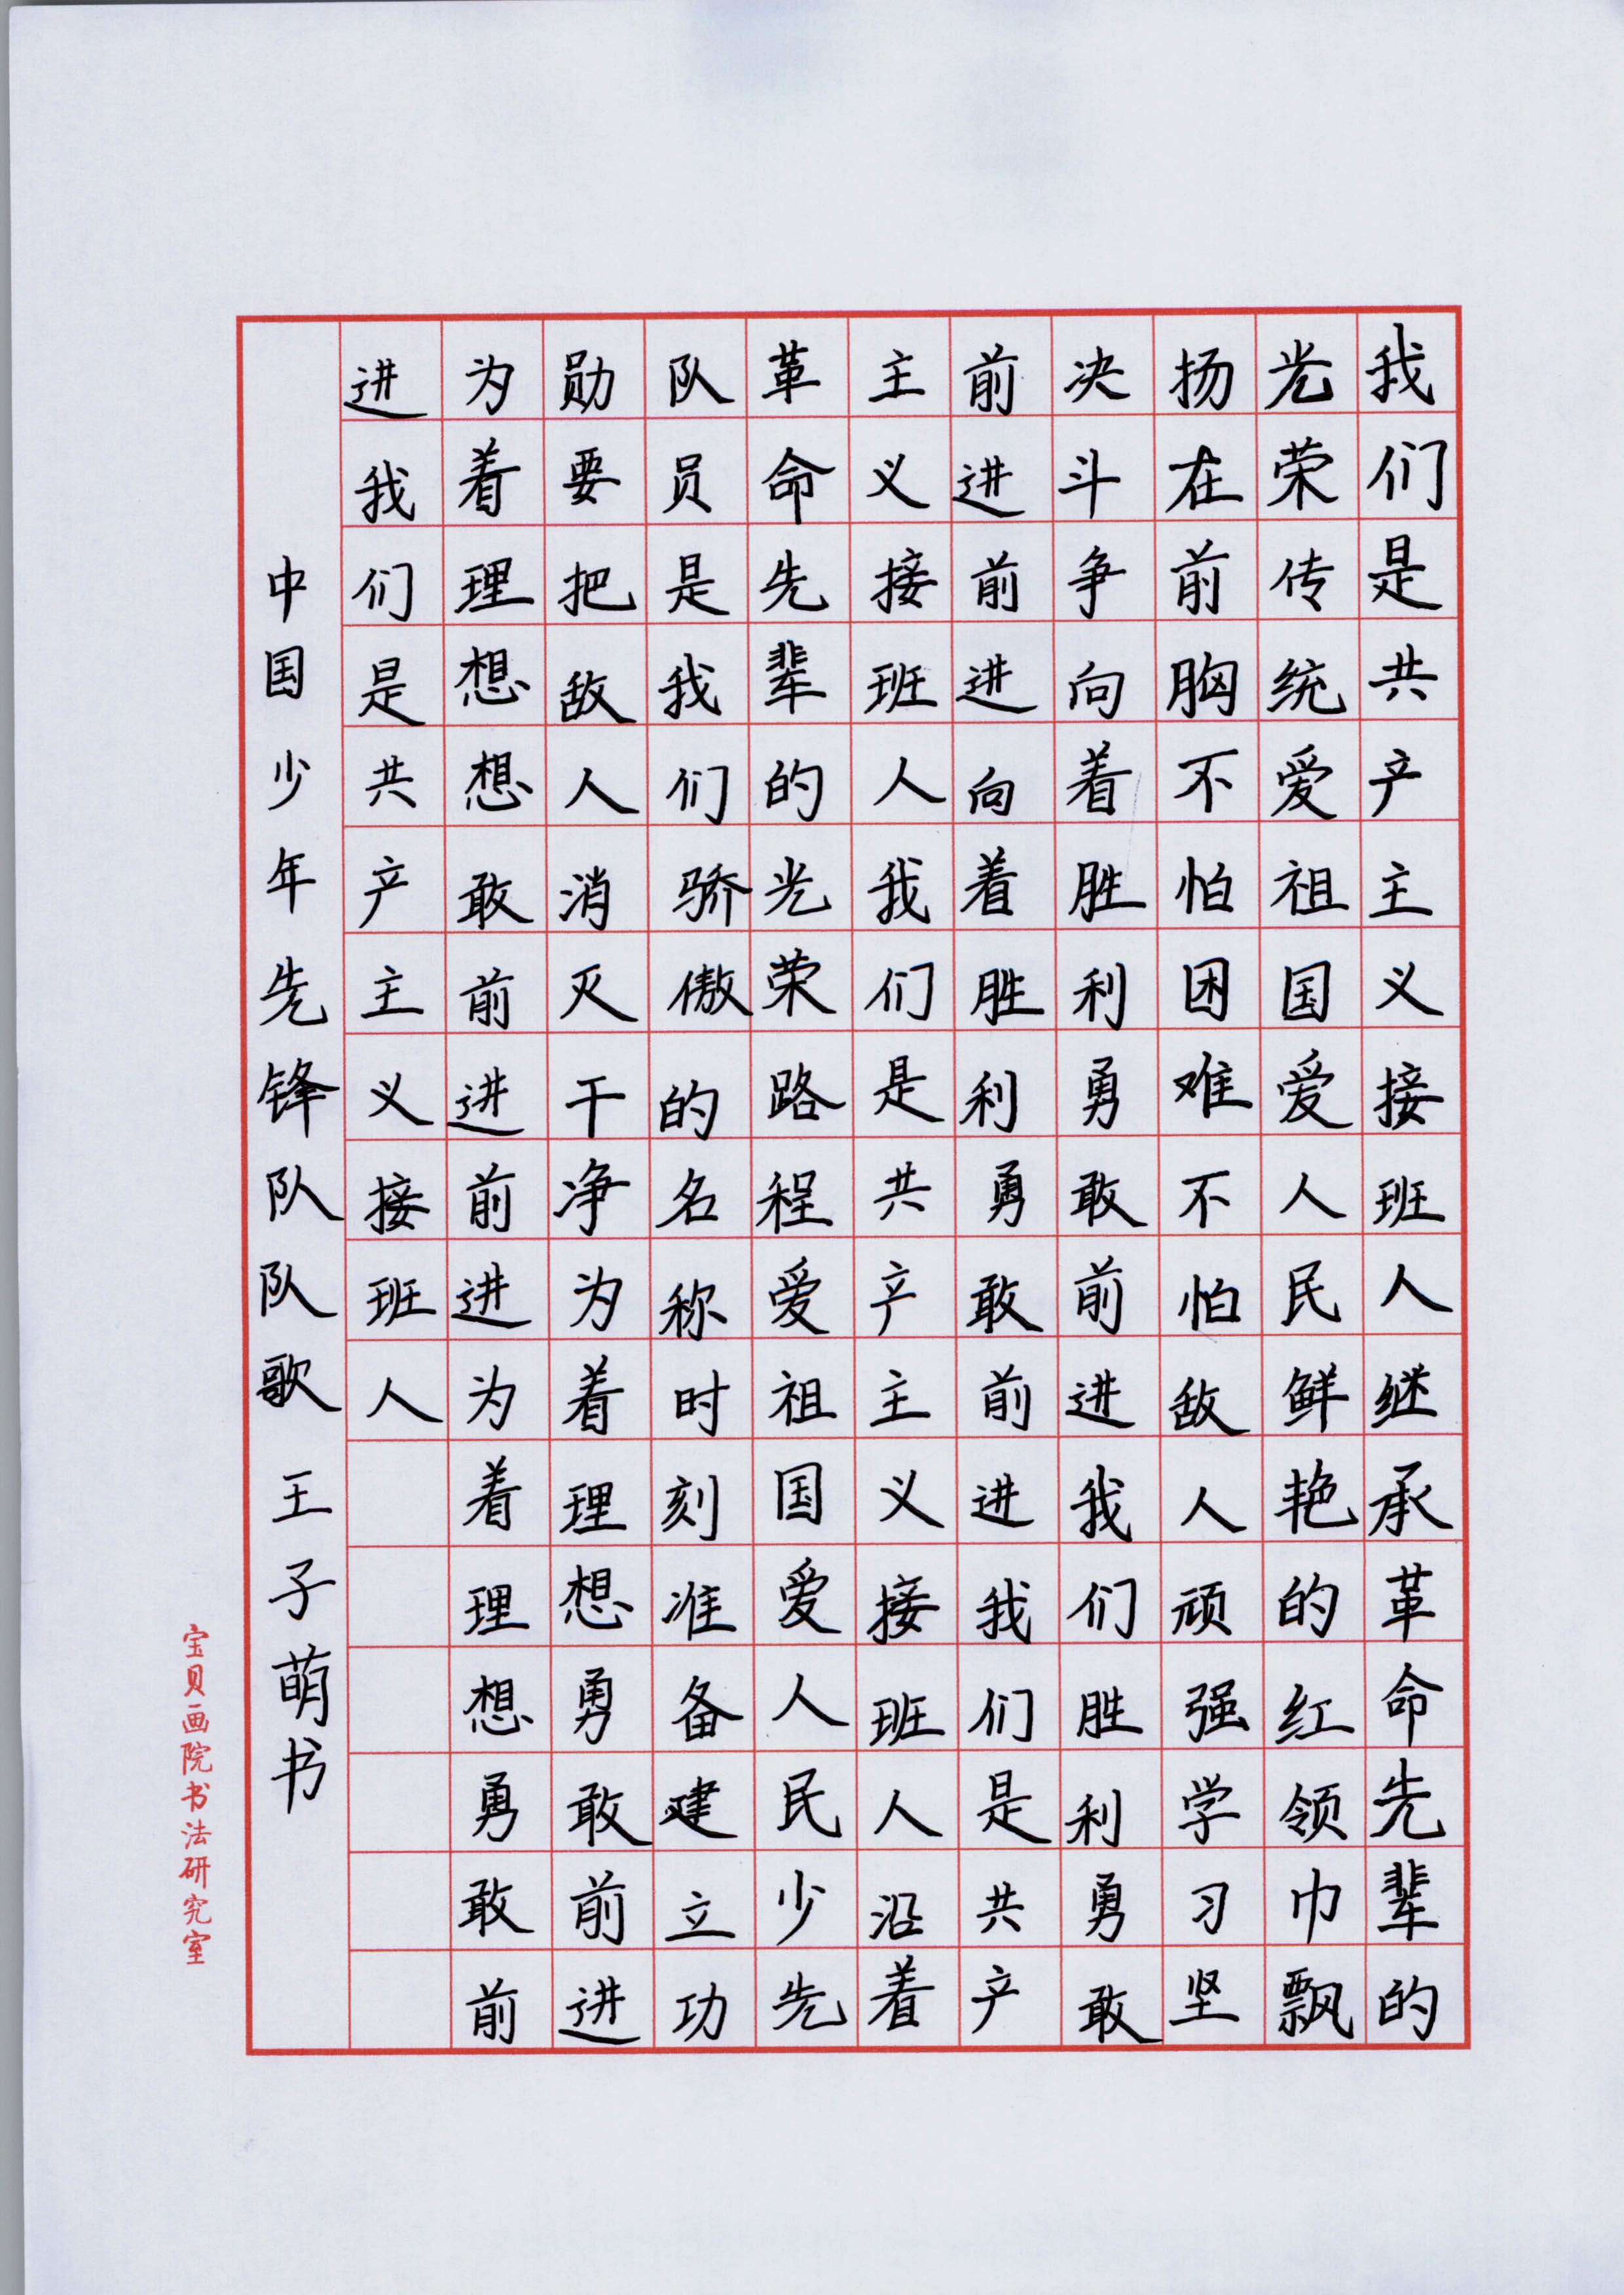 我们是共产主义接班人继承革命先辈的
光荣传统爱祖国爱人民鲜艳的红领巾飘
扬在前胸不怕困难不怕敌人顽强学习坚
决斗争向着胜利勇敢前进我们胜利勇敢
前进前进向着胜利勇敢前进我们是共产
主义接班人我们是共产主义接班人沿着
革命先辈的光荣路程爱祖国爱人民少先
队员是我们骄傲的名称时刻准备建立功
勋要把敌人消灭干净为着理想勇敢前进
为着理想想敢前进前进为着理想勇敢前
进我们是共产主义接班人
中国少年先锋队队歌 王子萌书
宝贝画院书法研究室